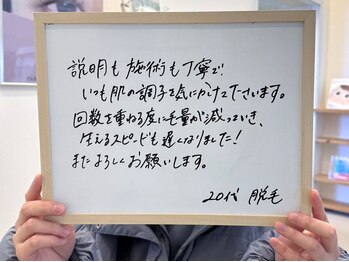 説明も施術も丁寧で
いつも肌の調子を気にかけて下さいます。
回数を重ねる度に毛量が減っていき、
生えるスピードも遅くなりました！
またよろしくお願いします。
20代 脱毛